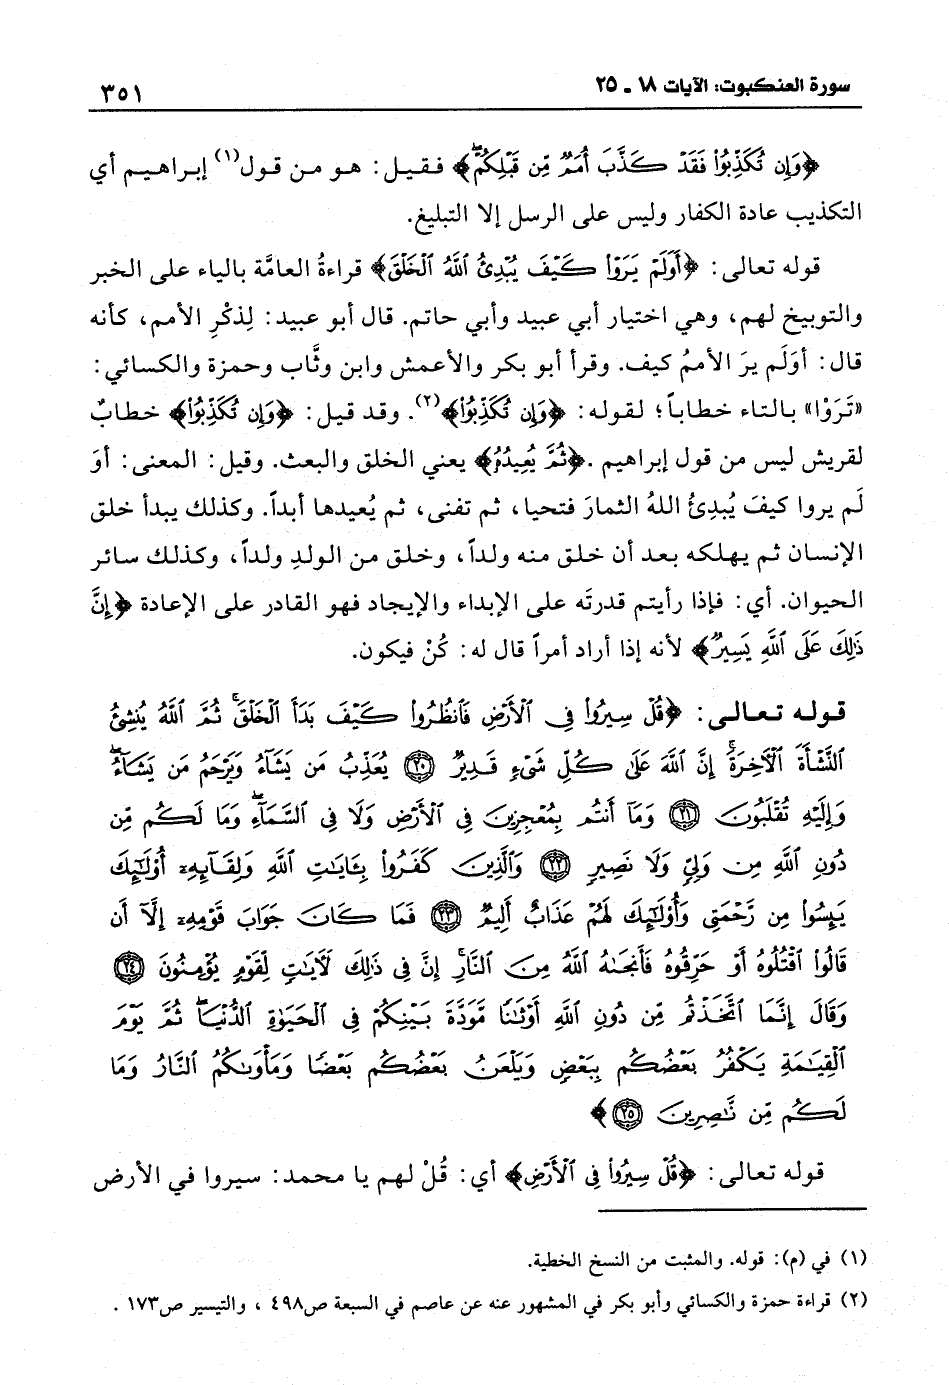 سورة العنكبوت: الآيات ١٨ - ٢٥
٣٥١
﴿وَإِن تُكَذِّبُواْ فَقَدْ كَذَّبَ أُمَمٌ مِّن قَبْلِكُمْ﴾ فقيل: هو من قول(١) إبراهيم أي
التكذيب عادة الكفار وليس على الرسل إلا التبليغ.
قوله تعالى: ﴿أَوَلَمْ يَرَوْاْ كَيْفَ يُبْدِئُ ٱللَّهُ ٱلْخَلْقَ﴾ قراءةُ العامَّة بالياء على الخبر
والتوبيخ لهم، وهي اختيار أبي عبيد وأبي حاتم. قال أبو عبيد: لِذكْرِ الأمم، كأنه
قال: أوَلَم يرَ الأممُ كيف. وقرأ أبو بكر والأعمش وابن وثَّاب وحمزة والكسائي:
«تَرَوْا» بالتاء خطاباً؛ لقوله: ﴿وَإِن تُكَذِّبُواْ﴾(٢). وقد قيل: ﴿وَإِن تُكَذِّبُواْ﴾ خطابٌ
لقريش ليس من قول إبراهيم .﴿ثُمَّ يُعِيدُهُ﴾ يعني الخلق والبعث. وقيل: المعنى: أوَ
لَم يروا كيفَ يُبدِئُ اللهُ الثمارَ فتحيا، ثم تفنى، ثم يُعيدها أبداً. وكذلك يبدأ خلق
الإنسان ثم يهلكه بعد أن خلق منه ولداً، وخلق من الولدِ ولداً، وكذلك سائر
الحيوان. أي: فإذا رأيتم قدرتَه على الإبداء والإيجاد فهو القادر على الإعادة ﴿إِنَّ
ذَٰلِكَ عَلَى ٱللَّهِ يَسِيرٌ﴾ لأنه إذا أراد أمراً قال له: كُنْ فيكون.
قوله تعالى: ﴿قُلْ سِيرُواْ فِي ٱلْأَرْضِ فَٱنظُرُواْ كَيْفَ بَدَأَ ٱلْخَلْقَ ۚ ثُمَّ ٱللَّهُ يُنشِئُ
ٱلنَّشْأَةَ ٱلْآخِرَةَ ۚ إِنَّ ٱللَّهَ عَلَىٰ كُلِّ شَىْءٍ قَدِيرٌ ٢٠ يُعَذِّبُ مَن يَشَآءُ وَيَرْحَمُ مَن يَشَآءُ ۖ
وَإِلَيْهِ تُقْلَبُونَ ٢١ وَمَآ أَنتُم بِمُعْجِزِينَ فِي ٱلْأَرْضِ وَلَا فِي ٱلسَّمَآءِ ۖ وَمَا لَكُم مِّن
دُونِ ٱللَّهِ مِن وَلِيٍّ وَلَا نَصِيرٍ ٢٢ وَٱلَّذِينَ كَفَرُواْ بِـَٔايَٰتِ ٱللَّهِ وَلِقَآئِهِۦٓ أُوْلَٰٓئِكَ
يَئِسُواْ مِن رَّحْمَتِي وَأُوْلَٰٓئِكَ لَهُمْ عَذَابٌ أَلِيمٌ ٢٣ فَمَا كَانَ جَوَابَ قَوْمِهِۦٓ إِلَّآ أَن
قَالُواْ ٱقْتُلُوهُ أَوْ حَرِّقُوهُ فَأَنجَىٰهُ ٱللَّهُ مِنَ ٱلنَّارِ ۚ إِنَّ فِي ذَٰلِكَ لَآيَٰتٍ لِّقَوْمٍ يُؤْمِنُونَ ٢٤
وَقَالَ إِنَّمَا ٱتَّخَذْتُم مِّن دُونِ ٱللَّهِ أَوْثَٰنًا مَّوَدَّةَ بَيْنِكُمْ فِي ٱلْحَيَوٰةِ ٱلدُّنْيَا ۖ ثُمَّ يَوْمَ
ٱلْقِيَٰمَةِ يَكْفُرُ بَعْضُكُم بِبَعْضٍ وَيَلْعَنُ بَعْضُكُم بَعْضًا وَمَأْوَىٰكُمُ ٱلنَّارُ وَمَا
لَكُم مِّن نَّٰصِرِينَ ٢٥﴾
قوله تعالى: ﴿قُلْ سِيرُواْ فِي ٱلْأَرْضِ﴾ أي: قُلْ لهم يا محمد: سيروا في الأرض
(١) في (م): قوله. والمثبت من النسخ الخطية.
(٢) قراءة حمزة والكسائي وأبو بكر في المشهور عنه عن عاصم في السبعة ص٤٩٨ ، والتيسير ص١٧٣ .